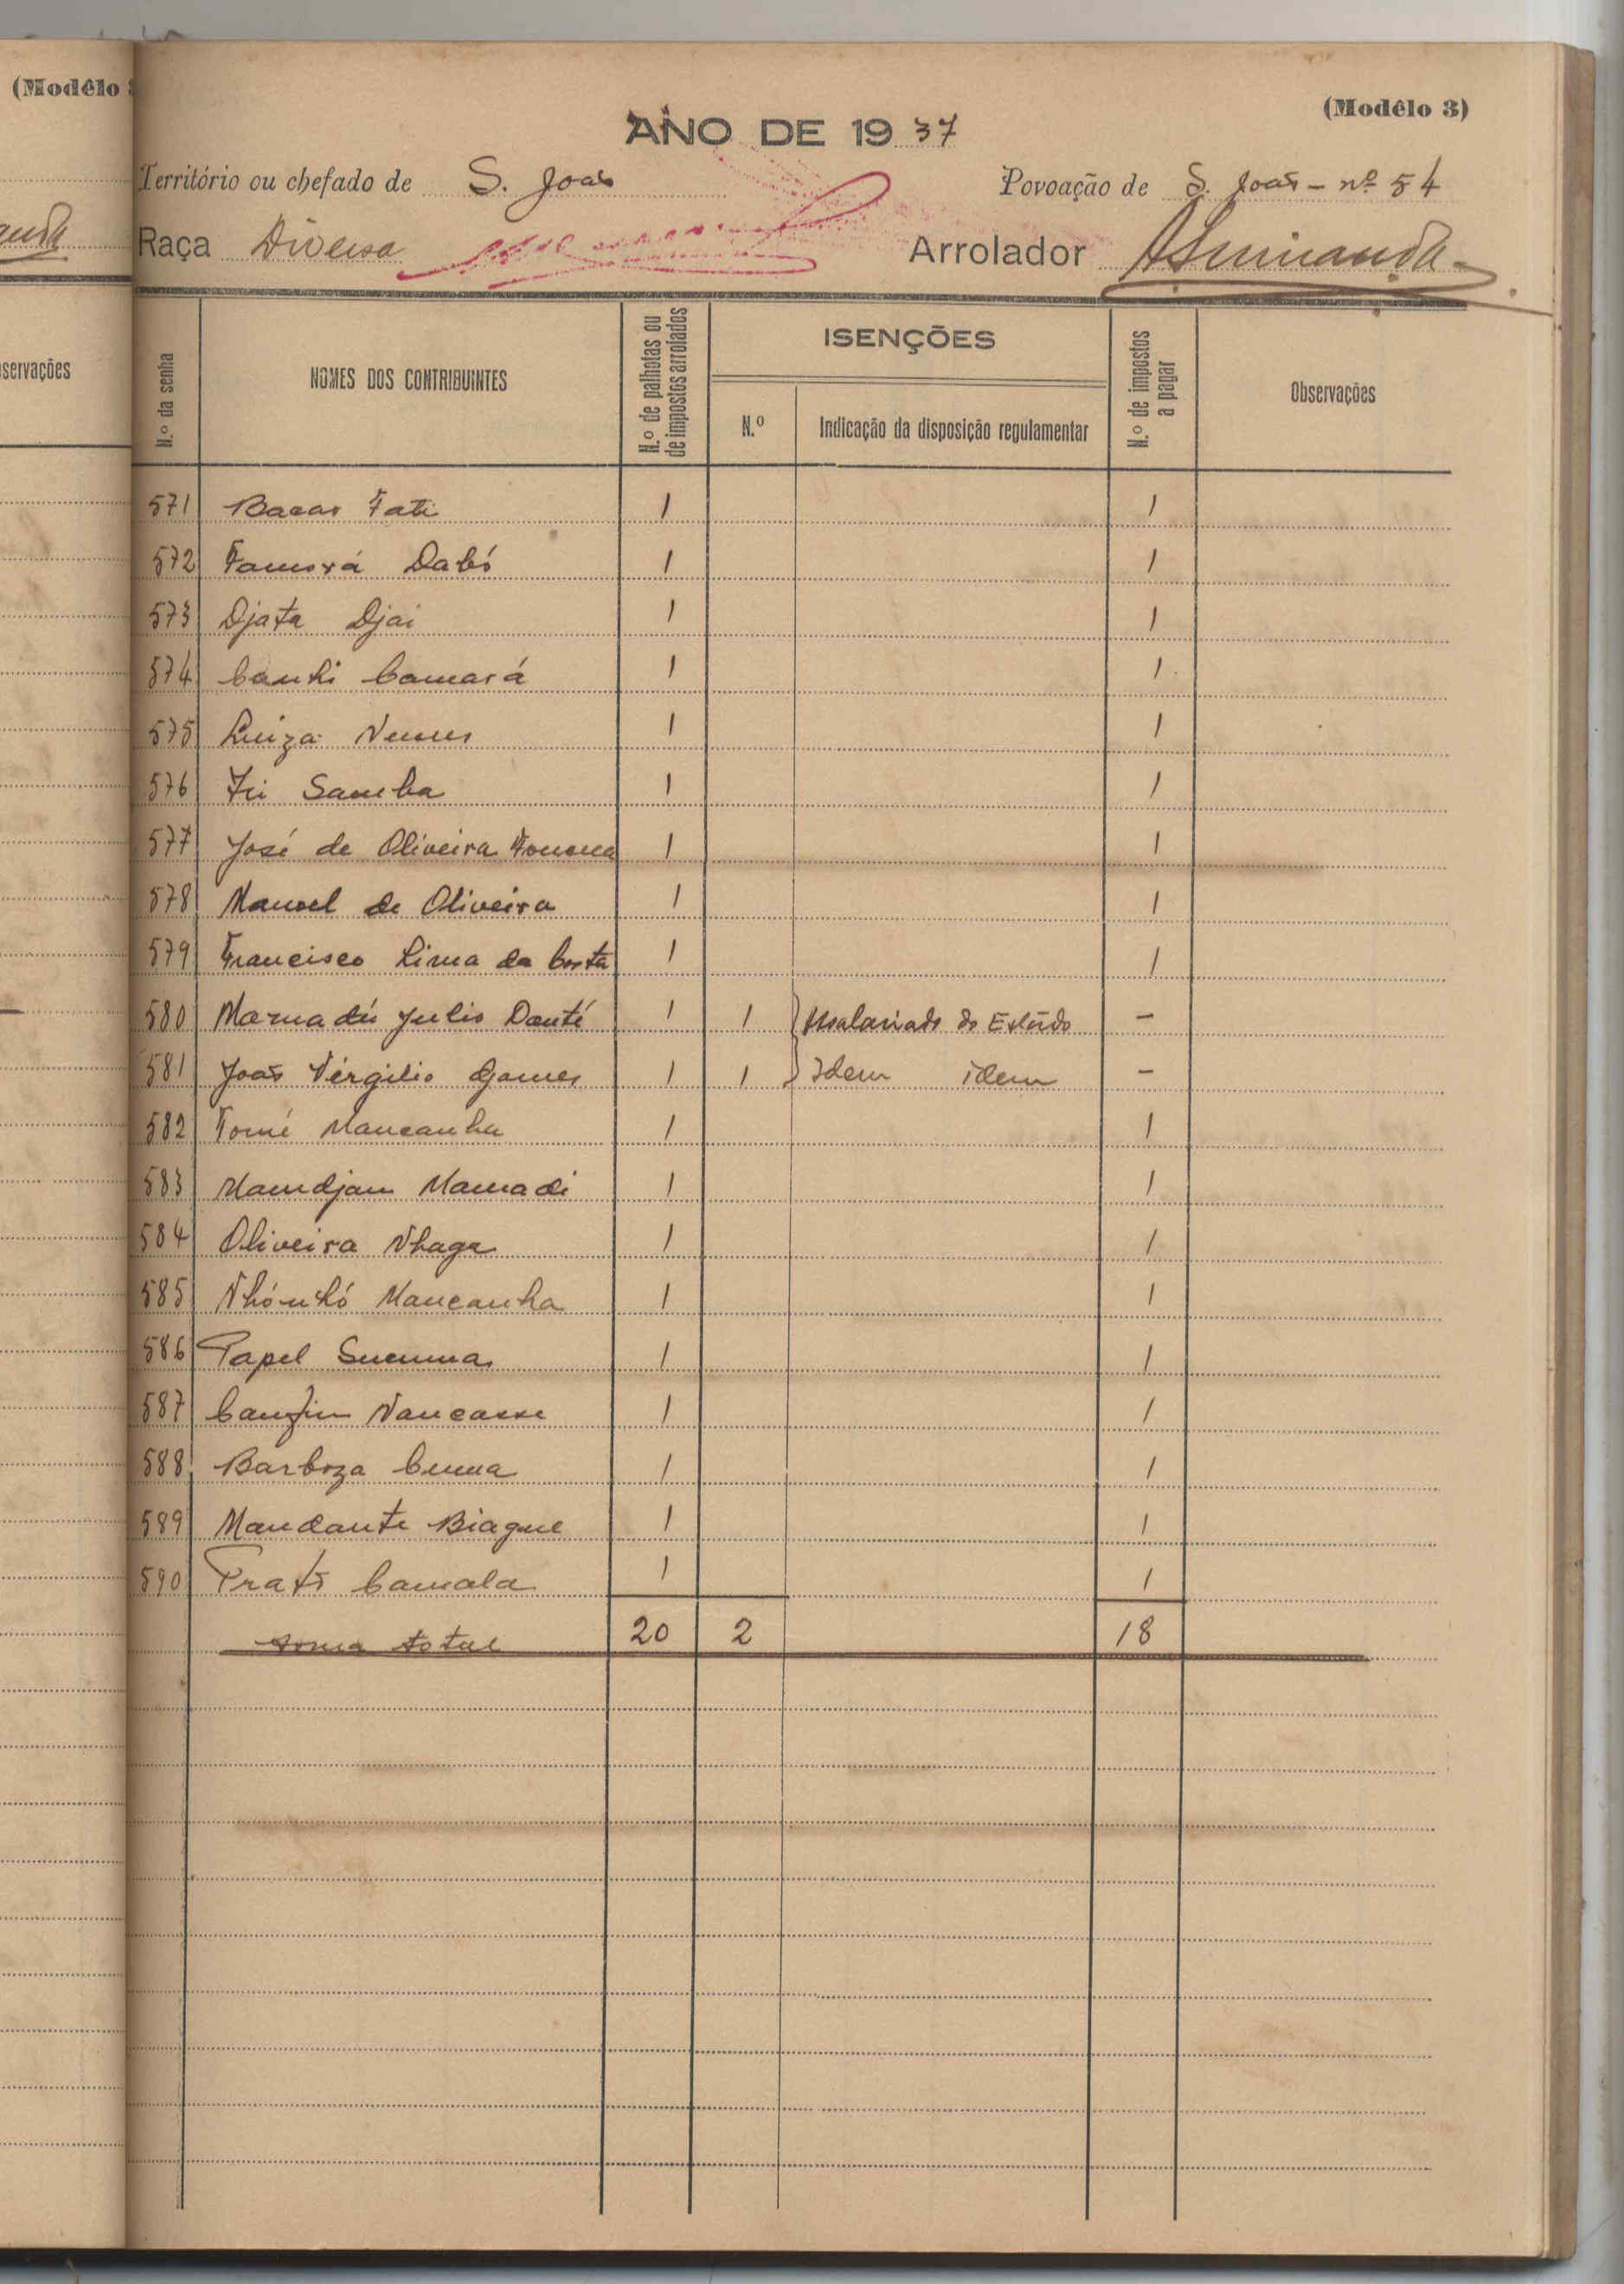 (Modêlo
(Modêlo 3)
ANO DE 19 37
Território ou chefado de S. João
Povoação de S. João - nº 54
Raça Diversa
Arrolador
servações
N.º da senha
NOMES DOS CONTRIBUINTES
N.º de palhotas ou de impostos arrolados
ISENÇÕES
N.º
Indicação da disposição regulamentar
N.º de impostos a pagar
Observações
571 Bacar Fati 1 1
572 Famorá Dabó 1 1
573 Djata Djai 1 1
574 Canhi Camará 1 1
575 Luiza Nunes 1 1
576 Samba 1 1
577 José de Oliveira Fonseca 1 1
578 Manoel de Oliveira 1 1
579 Francisco Lima da Costa 1 1
580 Mamadú Julio Danté 1 1 Assalariado do Estado —
581 João Vérgilio Gomes 1 1 Idem idem —
582 Tomé Mancanha 1 1
583 Mamdjam Mamadi 1 1
584 Oliveira Nhaga 1 1
585 Nhónhó Mancanha 1 1
586 Papel 1 1
587 1 1
588 Barboza 1 1
589 Mandante Biague 1 1
590 Camala 1 1
soma total 20 2 18